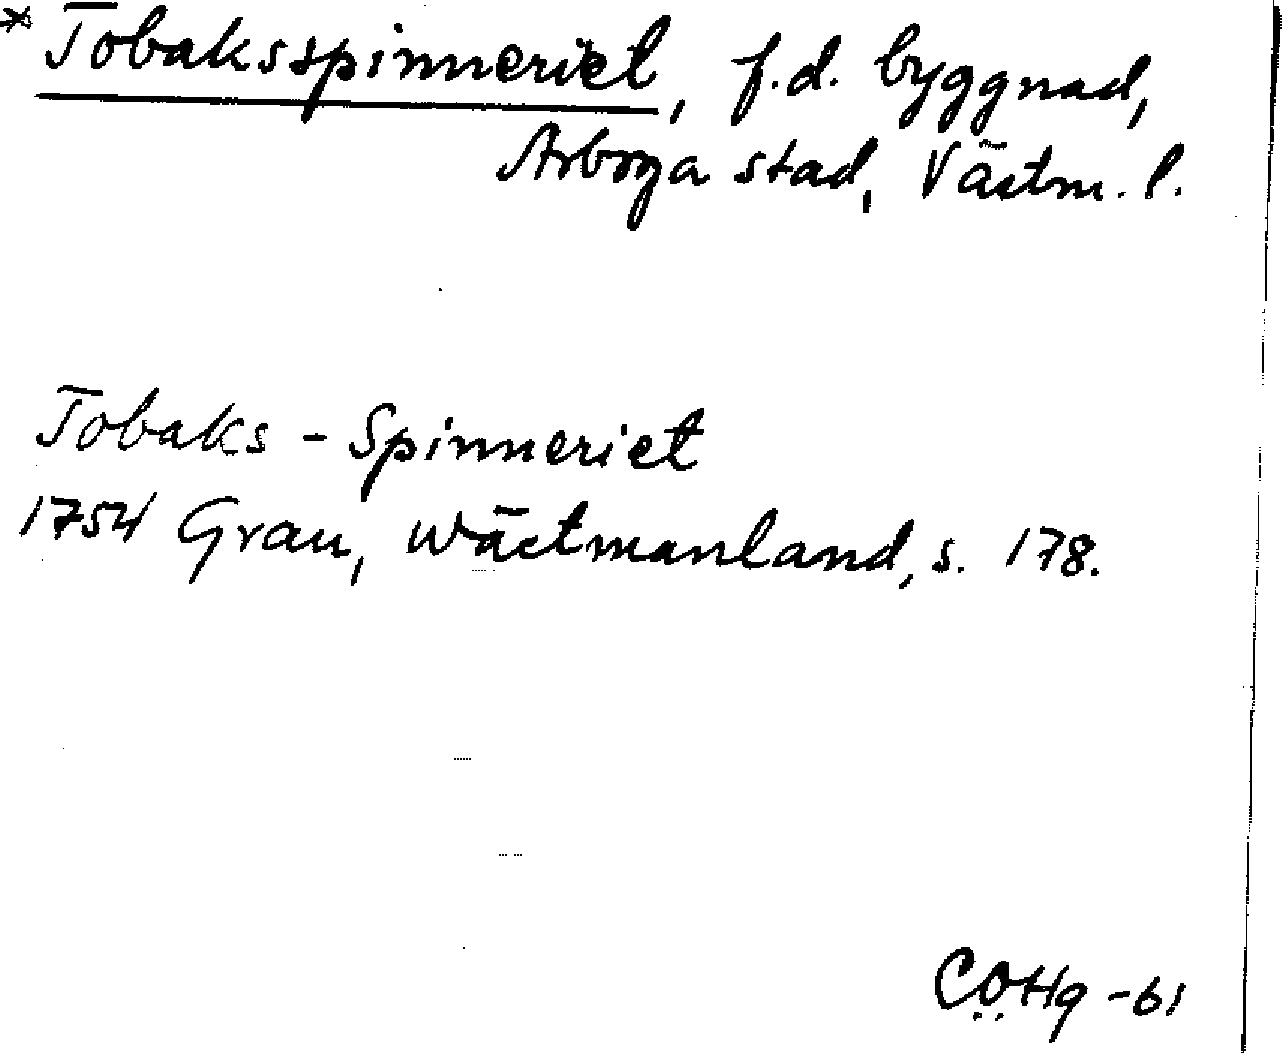 * Tobaksspinneriet, f.d. byggnad,
Arboga stad, Västm. l.
Tobaks-Spinneriet
1754 Grau, Wästmanland, s. 178.
CÖHg -61